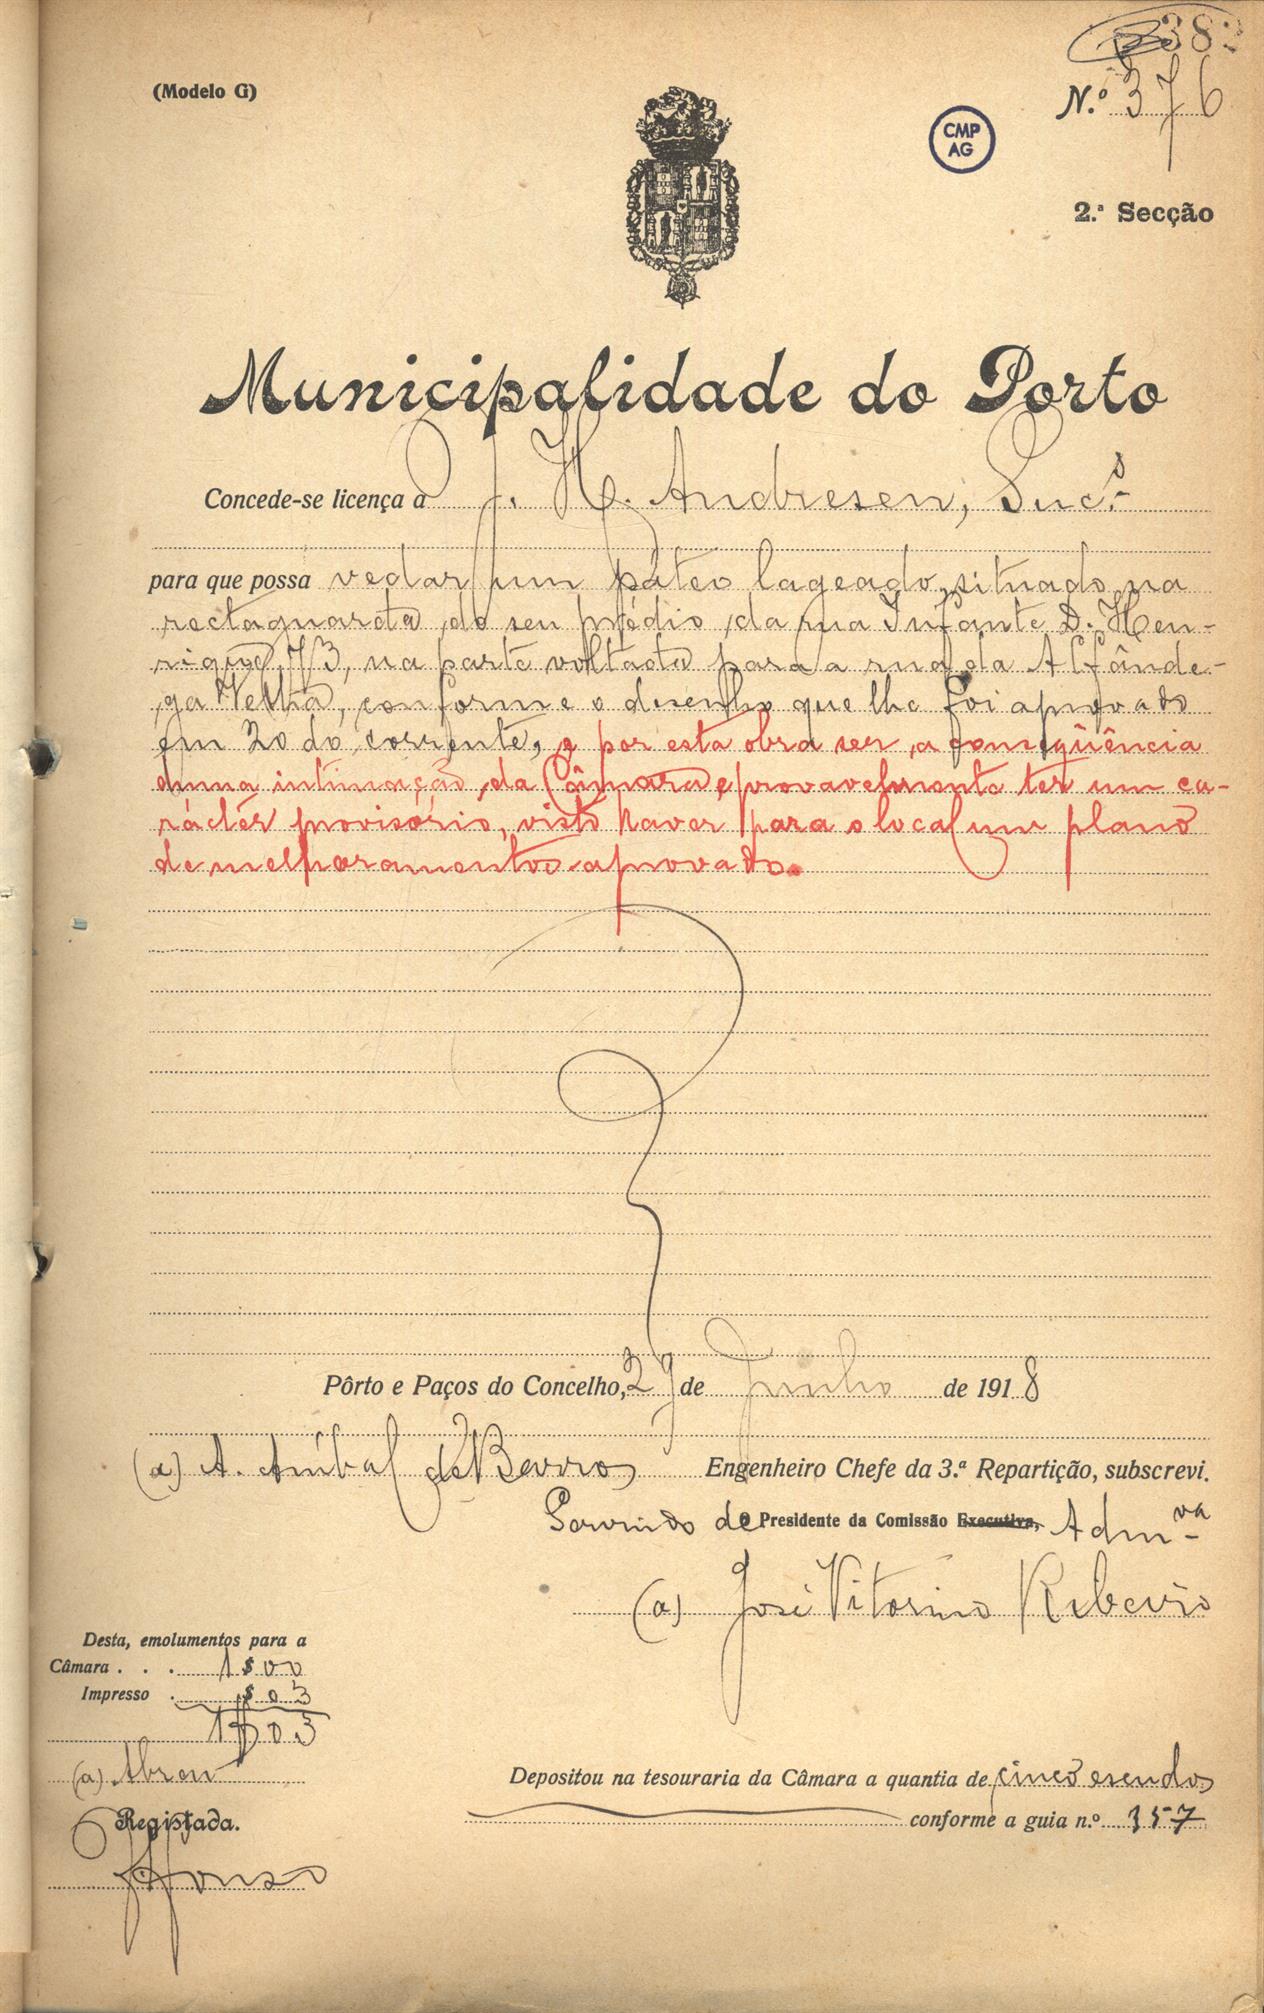 382
(Modelo G)
N.º 376
CMP
AG
2.ª Secção
Municipalidade do Porto
Concede-se licença a J. H. Andresen, Suc.s
para que possa vedar um páteo lageado, situado na
rectaguarda do seu prédio da rua Infante D. Hen-
rique, 73, na parte voltada para a rua da Alfânde-
ga Velha, conforme o desenho que lhe foi aprovado
em 20 do corrente, e por esta obra ser a conseqüência
duma intimação da Câmara e provavelmente ter um ca-
rácter provisório, visto haver para o local um plano
de melhoramentos aprovado.
Pôrto e Paços do Concelho, 27 de Junho de 1918
(a) A. Aníbal de Barros Engenheiro Chefe da 3.ª Repartição, subscrevi.
Servindo de Presidente da Comissão Executiva, Adm.va
(a) José Vitorino Ribeiro
Desta, emolumentos para a
Câmara . . . 1$00
Impresso . $03
1$03
(a) Abreu
Depositou na tesouraria da Câmara a quantia de cinco escudos
Registada.
conforme a guia n.º 357
Afonso